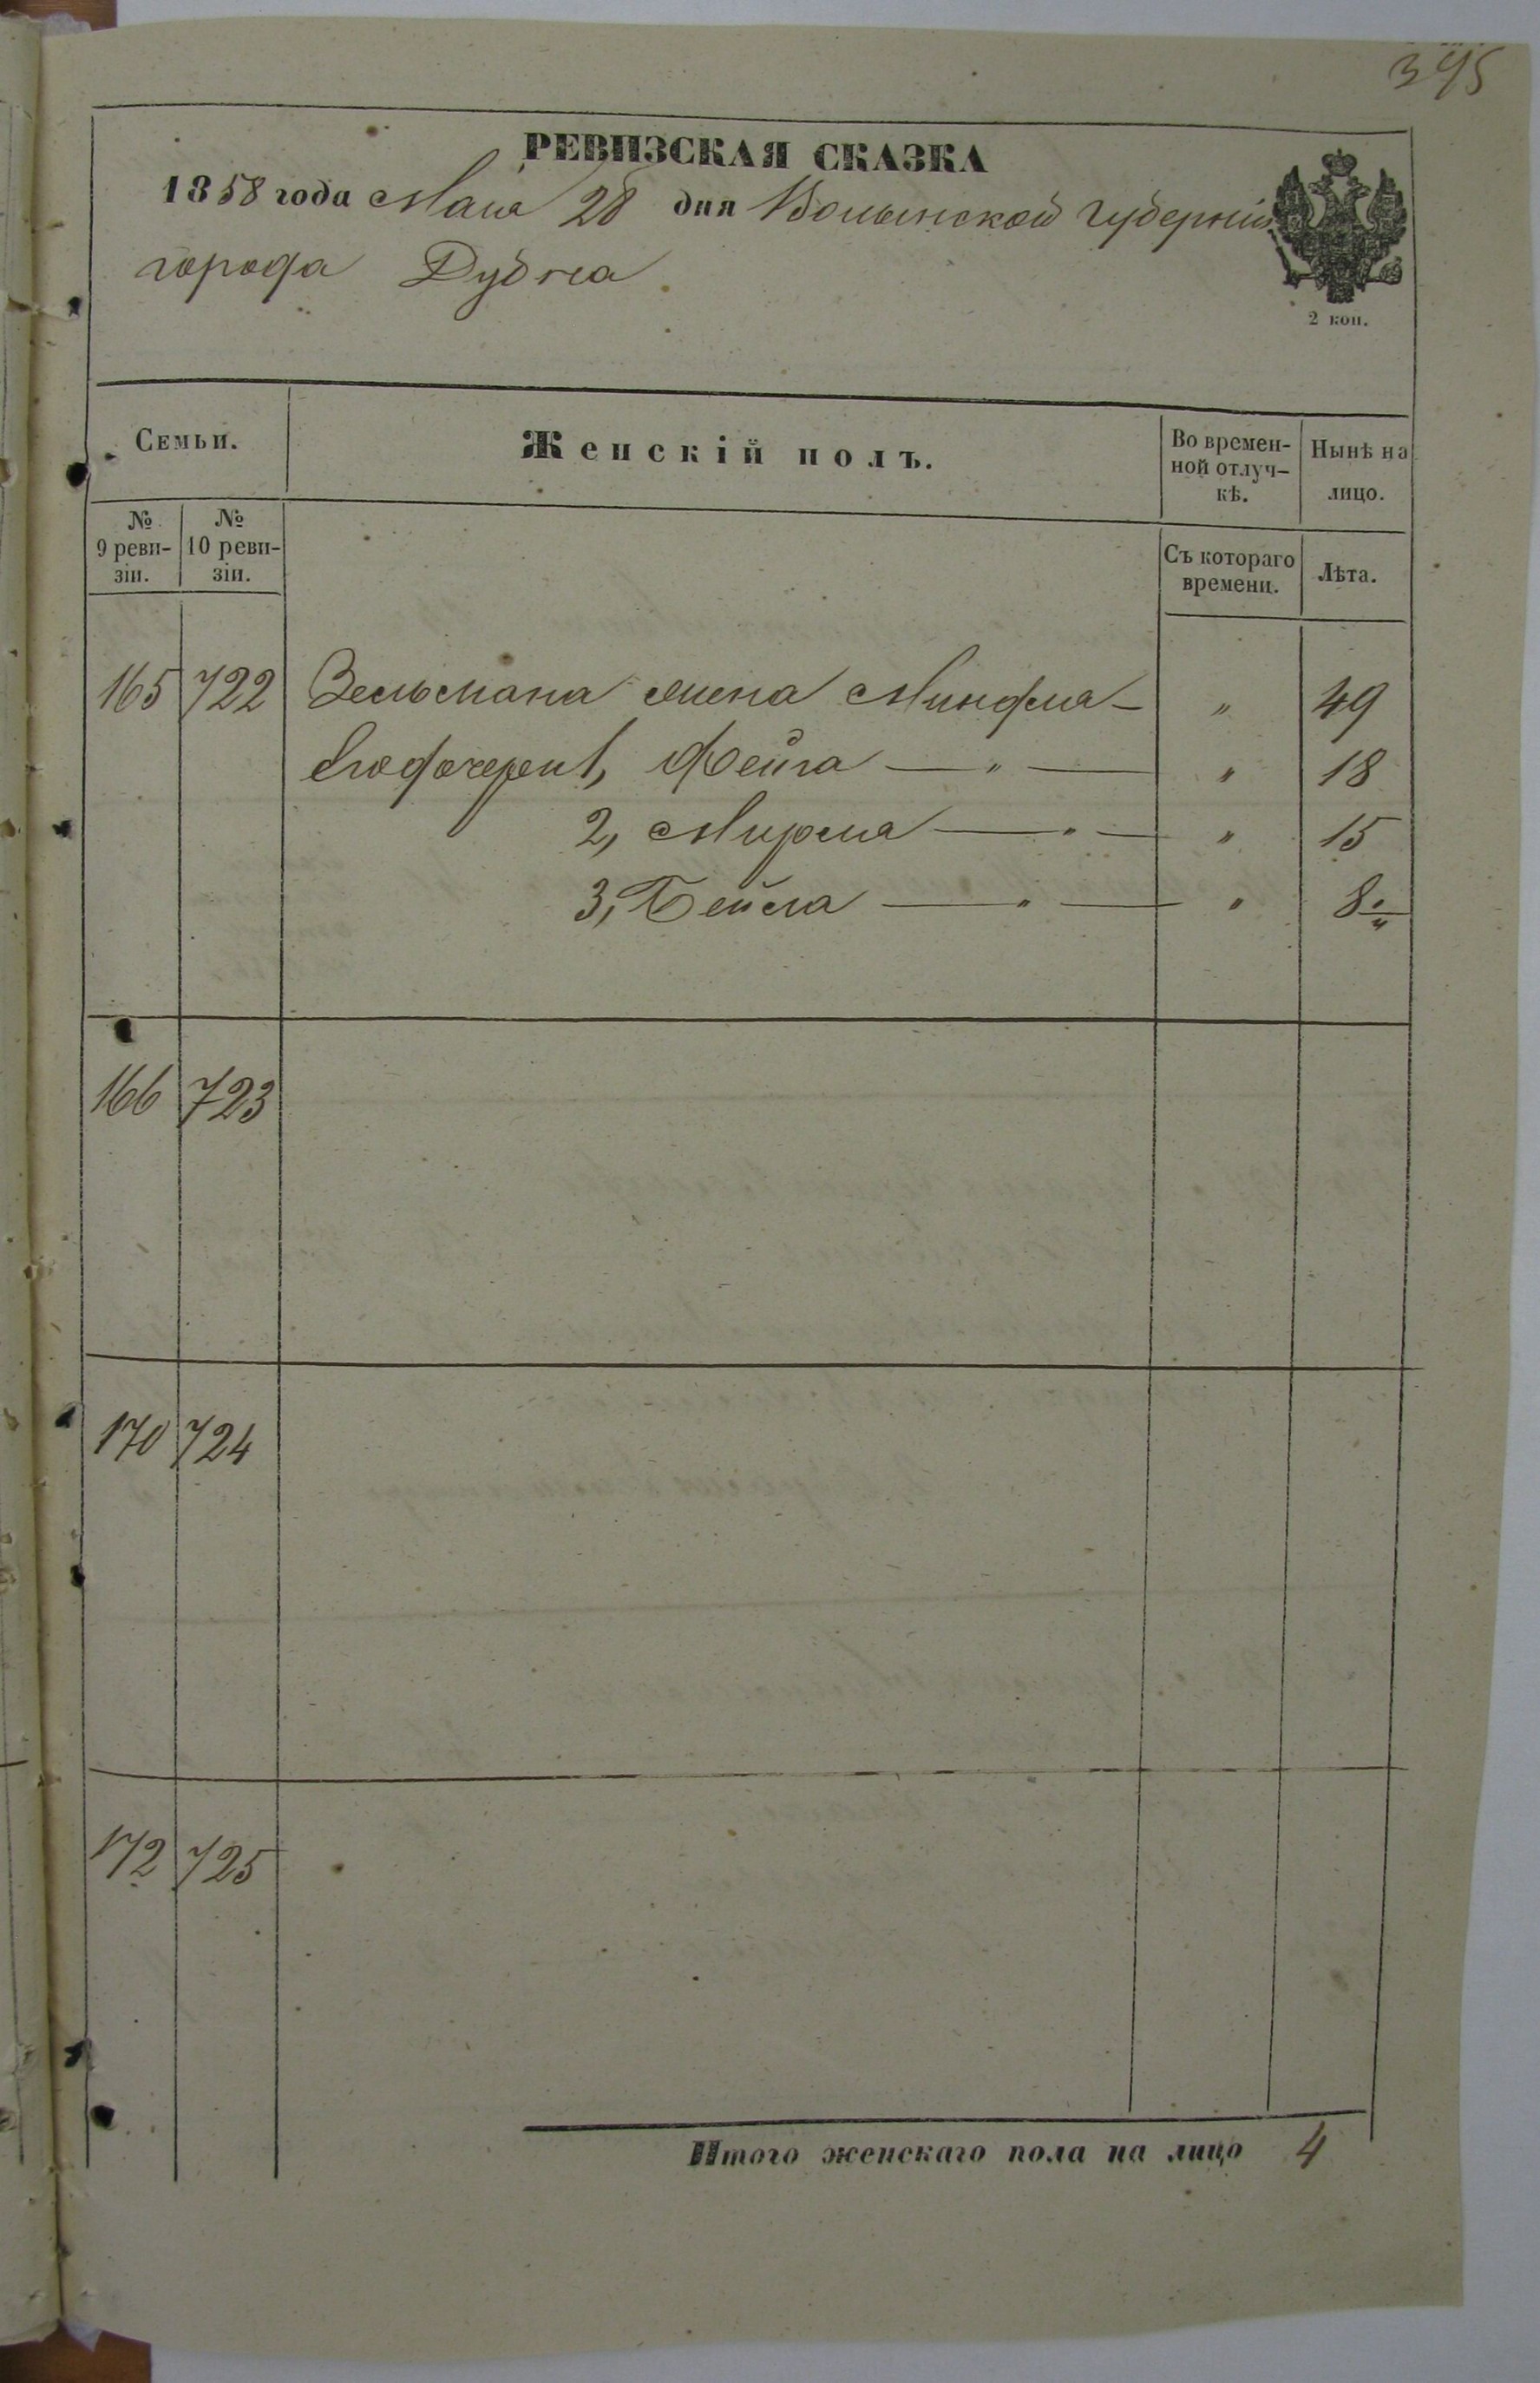 395
РЕВИЗСКАЯ СКАЗКА
1858 года Мая 28 дня Волынской Губерніи
города Дубна
2 коп.
Семьи.
Женскій полъ.
Во времен-
ной отлуч-
кѣ.
Нынѣ на
лицо.
№
9 реви-
зіи.
№
10 реви-
зіи.
Съ котораго
времени.
Лѣта.
165 722 Зельмана жена Миндля — „ 49
Его дочери 1, Фейга — „ — „ 18
2, Мирля — „ — „ 15
3, Бейла — „ — „ 8
166 723
170 724
172 725
Итого женскаго пола на лицо 4